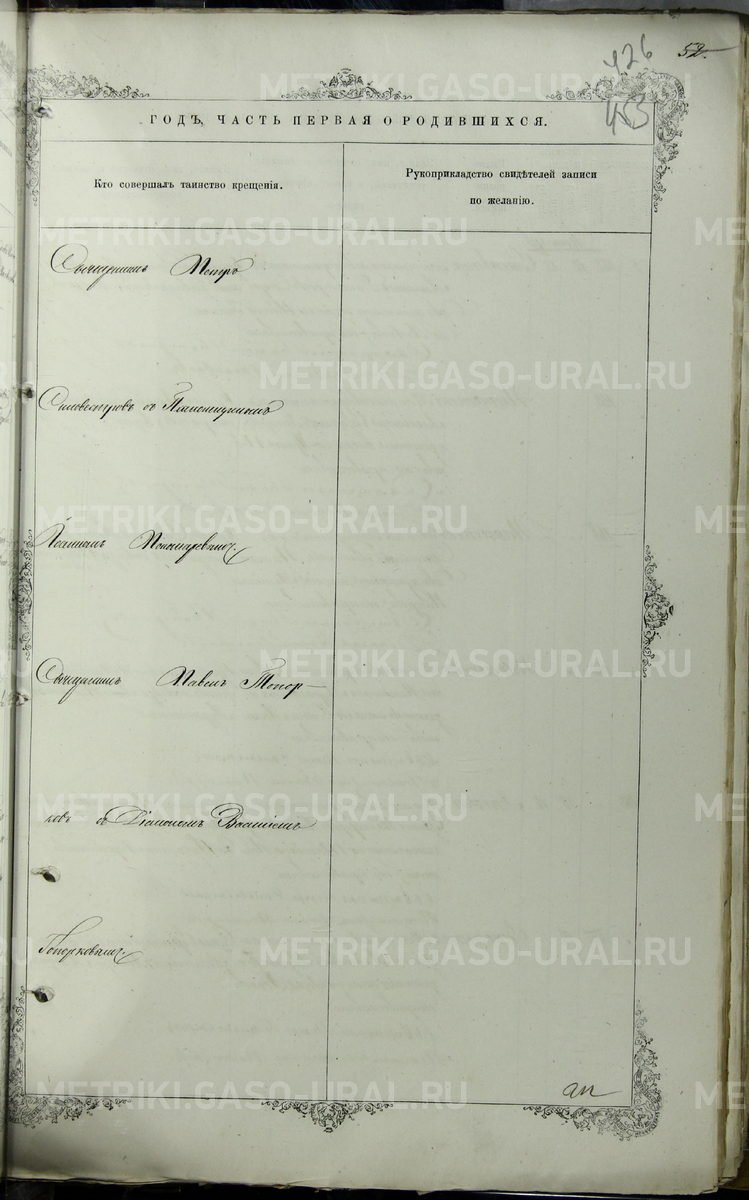 52.
426
453
ГОДЪ, ЧАСТЬ ПЕРВАЯ О РОДИВШИХСЯ.
Кто совершалъ таинство крещенія.
Рукоприкладство свидѣтелей записи
по желанію.
Священникъ Петръ
Сильвестровъ съ
Іоанномъ Пономаревымъ.
Священникъ Павелъ Топор-
ковъ съ Діакономъ Василіемъ
Топорковымъ.
METRIKI.GASO-URAL.RU